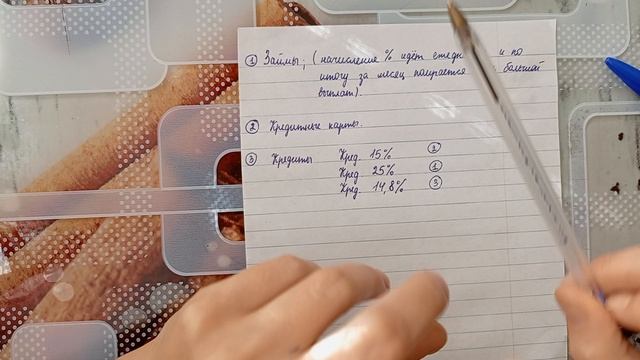 ① Займы; (начисление % идёт и по
итогу за месяц получается большой
выплат).
② Кредитные карты.
③ Кредиты Кред. 15% ②
Кред 25% ①
Кред. 14,8% ③